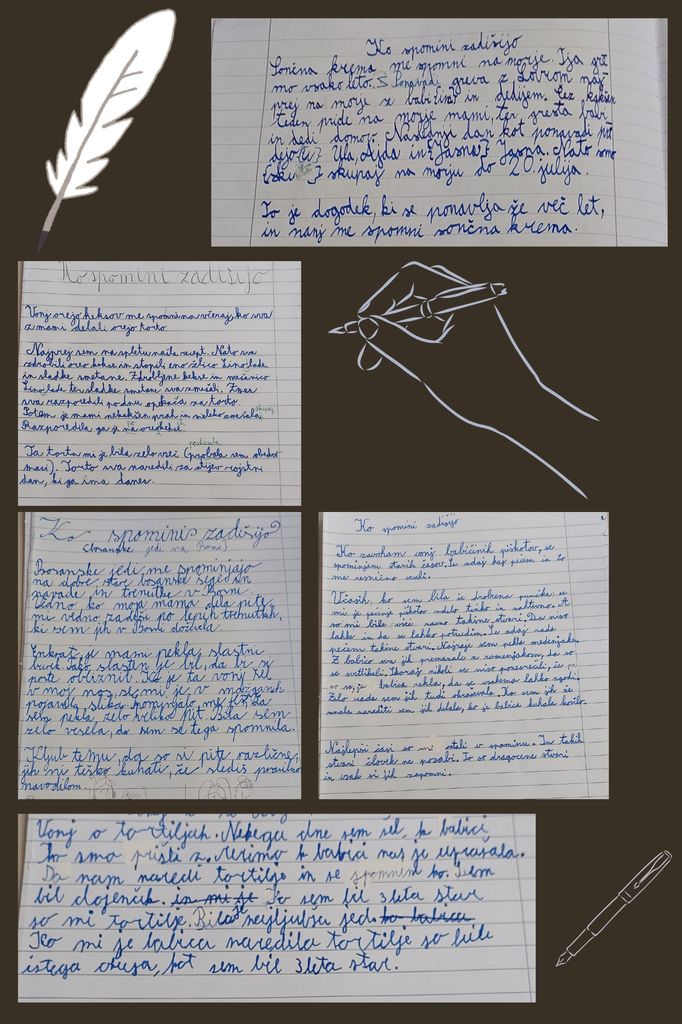 Ko spomini zadišijo
Sončna krema me spomni na morje. Tja gre-
mo vsako leto. Š Ponavadi greva z Lovrom naj-
prej na morje z babičin in dedijem. Čez kakšen
teden pride na morje mami, ter gresta babi
in dedi domov. Naslednji dan kot ponavadi pri-
dejo Ula, Ajda in {Jasna} Jasna. Nato smo
skupaj na morju do 20. julija.
To je dogodek, ki se ponavlja že več let,
in nanj me spomni sončna krema.
Ko spomini zadišijo
Vonj orejo keksov me spomni na včeraj, ko sva
z mami delali orejo torto.
Najprej sem na spletu našla recept. Nato sva
zdrobili oreo kekse in stopili eno žlico
in sladke smetane. Zdrobljene kekse in mešanico
ter sladke smetane sva zmešali. Zmes
sva razporedili po dnu pekača za torto.
Potem je mami nekakšen prah in mleko zmešala skupaj
Razporedila ga je na orejo kekse.
poskusila
Ta torta mi je bila zelo všeč (probala sem sledove
mase). Torto sva naredili za stijev rojstni
dan, ki ga ima danes.
Ko spomini zadišijo
(bosanske jedi iz Bosne)
Bosanske jedi me spominjajo
na dobre stare bosanske šege in
navade in trenutke v Bosni.
Vedno ko moja mama dela pite
mi vedno zadiši po lepih trenutkih,
ki sem jih v Bosni doživela.
Enkrat je mami pekla slastni
burek. Tako slasten je bil, da bi si
prste obliznil. Ko je ta vonj šel
v moj nos, se mi je v možganih
pojavila slika
pekla zelo veliko pit. Bila sem
zelo vesela, da sem se tega spomnila.
Kljub temu, da so si pite različne,
jih ni težko kuhati, če slediš pravilno
navodilom.
Ko spomini zadišijo
Ko zavoham vonj babičinih piškotov, se
spominjam starih časov. Še sedaj kaj pečem in to
me resnično veseli.
Včasih, ko sem bila še drobna punčka, se
mi je pečenje piškotov zdelo težko in zahtevno. A
so mi bile všeč ravno takšne stvari. Da niso
lahke in da se lahko potrudim. Še sedaj rada
pečem takšne stvari. Najraje sem pekla medenjake.
Z babico sva jih premazale z rumenjakom, da so
se svetlikali. Skoraj nikoli se niso ponesrečili, če pa
so se, je babica rekla, da se vsakemu lahko zgodi.
Zelo rada sem jih tudi okraševala. Ko sem jih že
znala narediti sem jih delala, ko je babica kuhala kosilo.
Najlepši časi so mi ostali v spominu. In takih
stvari človek ne pozabi. To so dragocene stvari
in vsak si jih zapomni.
Vonj o tortiljah. Nekega dne sem šel k babici
Ko smo prišli z Jerimo k babici nas je vprašala.
Da nam naredi tortilje in se spomnem ko. Sem
bil dojenček. in mi je Ko sem bil 3 leta star
so mi tortilje. Bila je najljubša jed. ko babica
Ko mi je babica naredila tortilje so bile
istega okusa, kot sem bil 3 leta star.